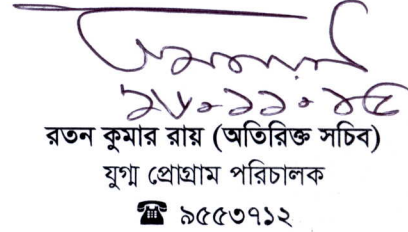 রতন কুমার রায় (অতিরিক্ত সচিব)
যুগ্ম প্রোগ্রাম পরিচালক
☎ ৯৫৫৩৭১২